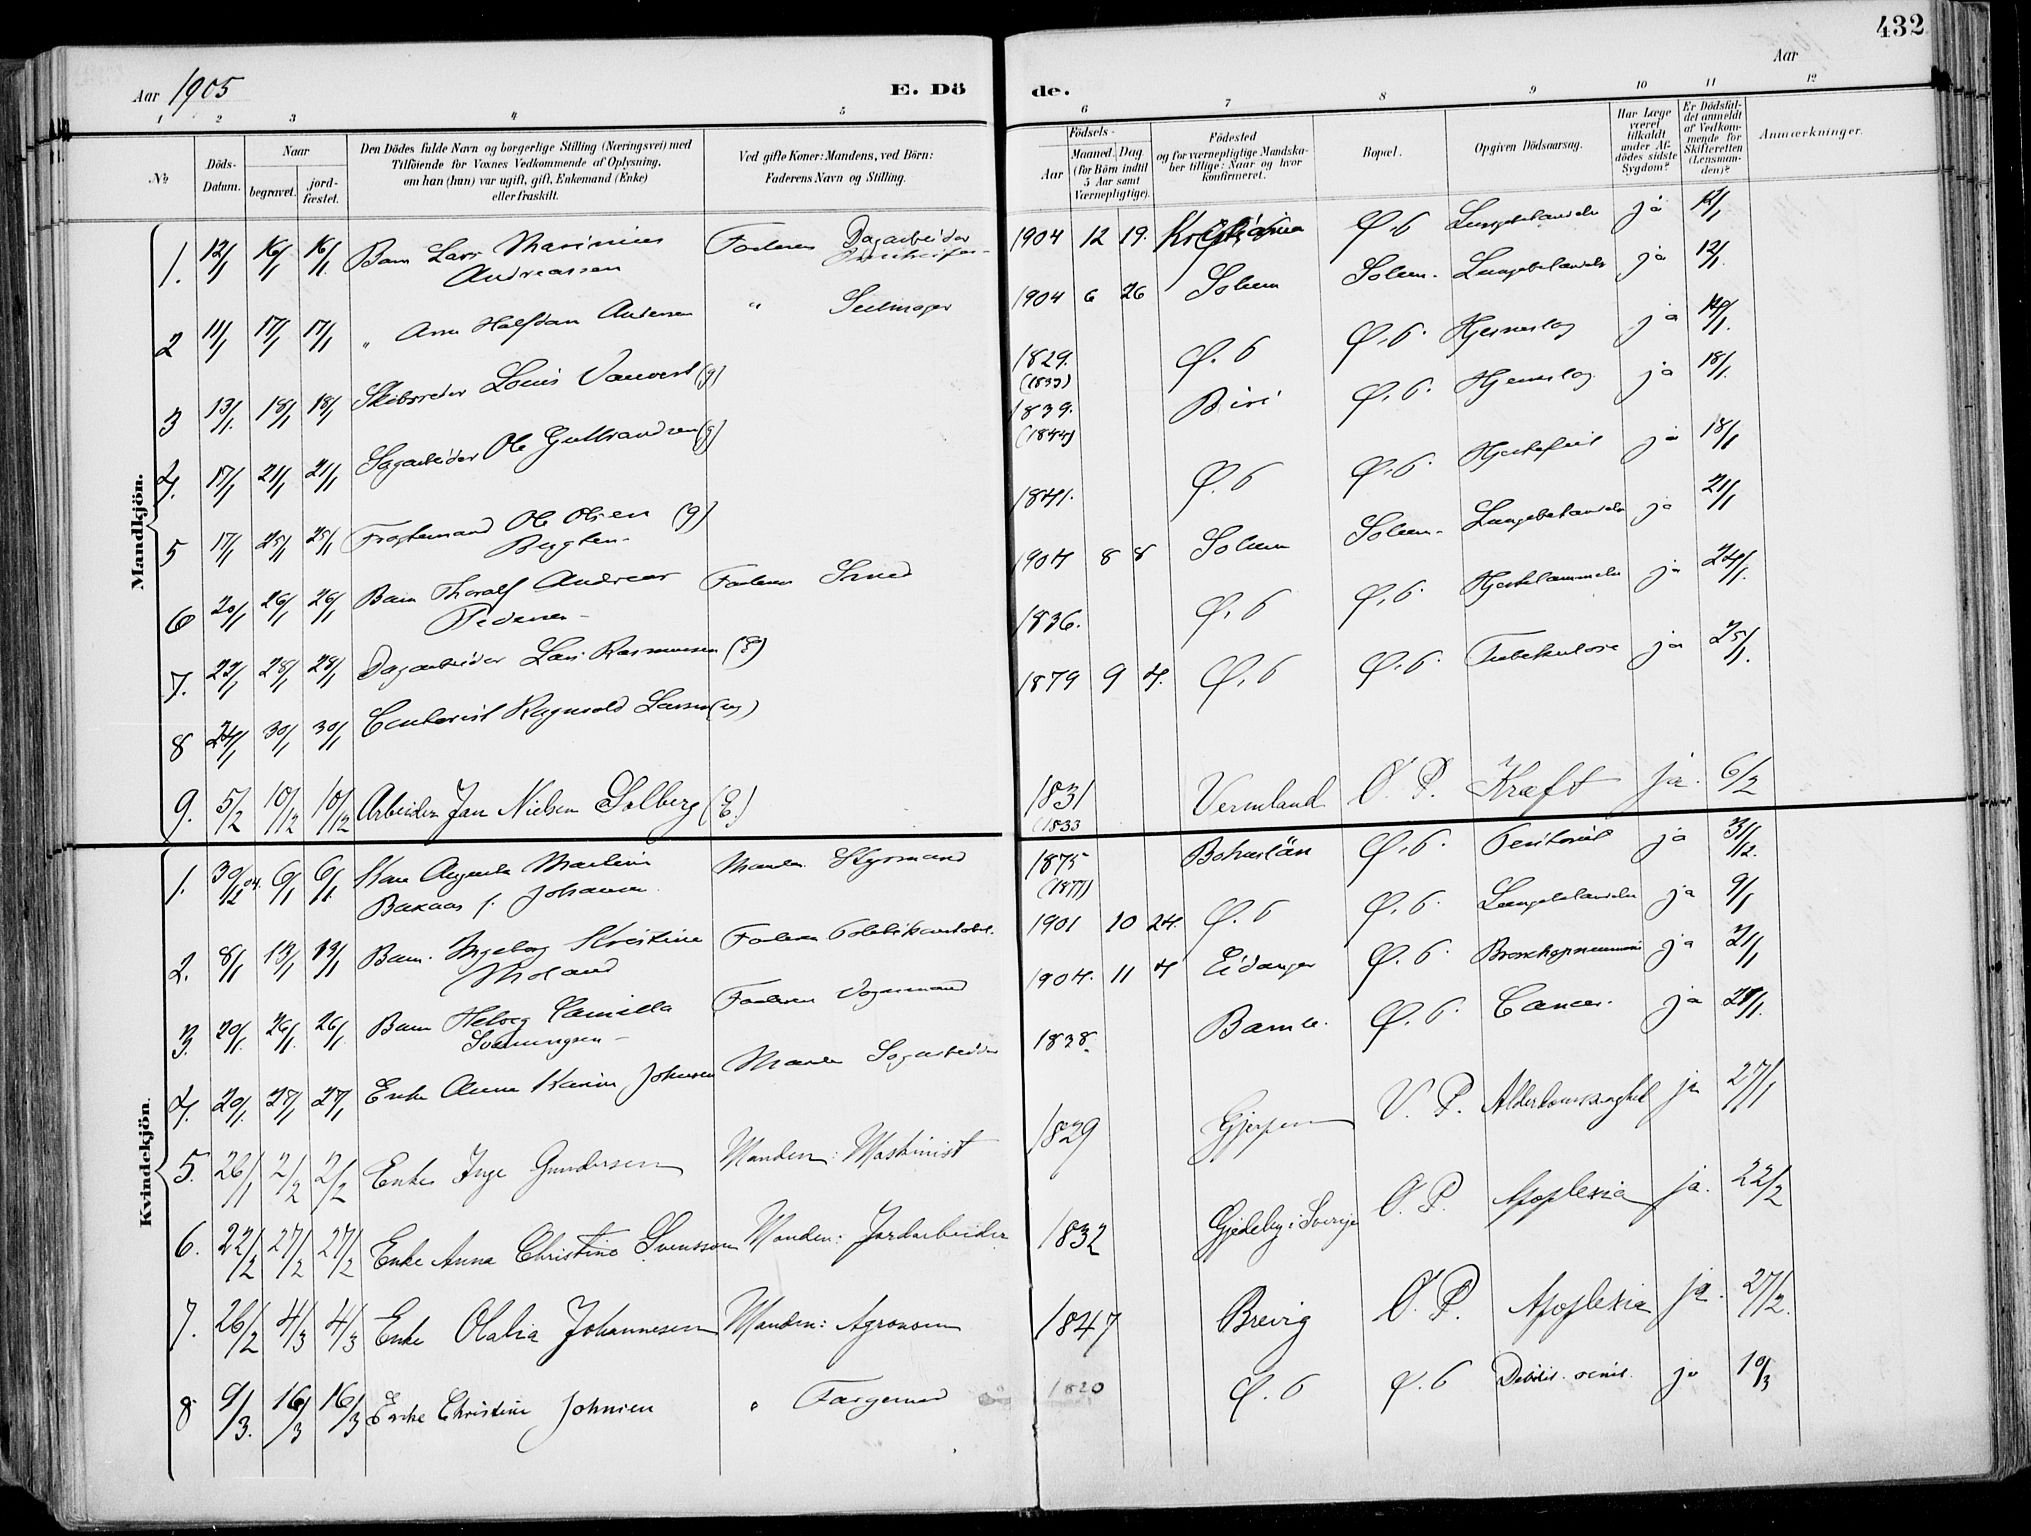 432
Aar 1905
E. Dö
de.
Aar
1 2 3 4 5 6 7 8 9 10 11 12
№
Döds-Datum.
Naar
begravet.
jord-fæstet.
Den Dödes fulde Navn og borgerlige Stilling (Næringsvei) med
Tilföiende for Voxnes Vedkommende af Oplysning,
om han (hun) var ugift, gift, Enkemand (Enke)
eller fraskilt.
Ved gifte Koner: Mandens, ved Börn:
Faderens Navn og Stilling.
Födsels-
Aar
Maaned. Dag
(for Börn indtil
5 Aar samt
Værnepligtige).
Födested
og for værnepligtige Mandska-
ber tillige: Naar og hvor
konfirmeret.
Bopæl.
Opgiven Dödsaarsag.
Har Læge
været
tilkaldt
under Af-
dödes sidste
Sygdom?
Er Dödsfal-
det anmeldt
af Vedkom-
mende for
Skifteretten
(Lensman-
den)?
Anmærkninger.
Mandkjön.
1. 12/1 16/1 16/1 Barn Lars Marinius Faderen Dagarbeider 1904 12 19. Ø.P. Lungebetændelse ja 12/1
Andreassen
2 11/1 17/1 17/1 " Arne Halfdan Andersen " Seilmager 1904 6 26 Solum Solum. Lungebetændelse ja 12/1.
3 13/1. 18/1 18/1 Skibsreder Louis (g) 1829. Ø.P. Ø.P. Hjerneslag ja
(1833)
4. 17/1 21/1 21/1 Sagarbeider Ole Gulbrandsen (g) 1839. Biri Ø.P. Hjerneslag ja 18/1.
(1844)
5 17/1 25/1 25/1 Fragtemand Ole Olsen (g) 1841. Ø.P. Ø.P. Hjertefeil ja 18/1
6 20/1 26/1 26/1 Barn Thoralf Andreas Faderen Smed 1904 8 8 Solum Solum. Lungebetændelse ja 21/1
Pedersen
7. 23/1 28/1 28/1 Dagarbeider Lars Rasmussen (E) 1836. Ø.P. Ø.P. Hjertelammelse ja 24/1.
8 24/1 30/1 30/1 Contorist Ragnvald Larsen (ug) 1879 9 4. Ø.P. Ø.P. Tuberkulose ja 25/1.
9. 5/2 10/12 10/12 Arbeider Jan Nielsen Solberg (E.) 1831 Vermland Ø.P. Kræft ja. 6/2
(1833
Kvindekjön.
1. 30/12 04. 6/1 6/1. Kone Augusta Martine Manden Styrmand 1875 Bohuslän Ø.P. Peritonit ja 31/12.
f. Johansen (1877)
2. 8/1 13/1 13/1 Barn. Ingeborg Kristine Faderen 1901 10 24. Ø.P. Ø.P. Lungebetændelse ja 9/1
Moland
3. 20/1. 26/1. 26/1. Barn Helveg Camilla Faderen Vognmand 1904. 11 4 Eidanger Ø.P. Bronchopneumoni ja 21/1
Svenungsen
4. 20/1. 27/1 27/1 Enke Anne Karine Johnsen Manden Sagarbeider 1838. Bamle. Ø.P. Cancer. ja 21/1.
5. 26/1 2/2 2/2 Enke Inge Gundersen Manden: Maskinist 1829 Gjerpen V.P. Alderdomssvaghed ja 27/1
6. 22/2 27/2 27/2 Enke Anna Christine Svensson Manden: Jordarbeider 1832 Gjedeby i Sverige Ø.P. Apoplexia ja. 22/2
7. 26/2 4/3 4/3 Enke Olalia Johannesen Manden: Agronom 1847 Brevig Ø.P. Apoplexia ja. 27/2.
8 9/3. 16/3 16/3 Enke Christine Johnsen " Færgemand 1820 Ø.P. Ø.P. Debilit. senil. ja 10/3